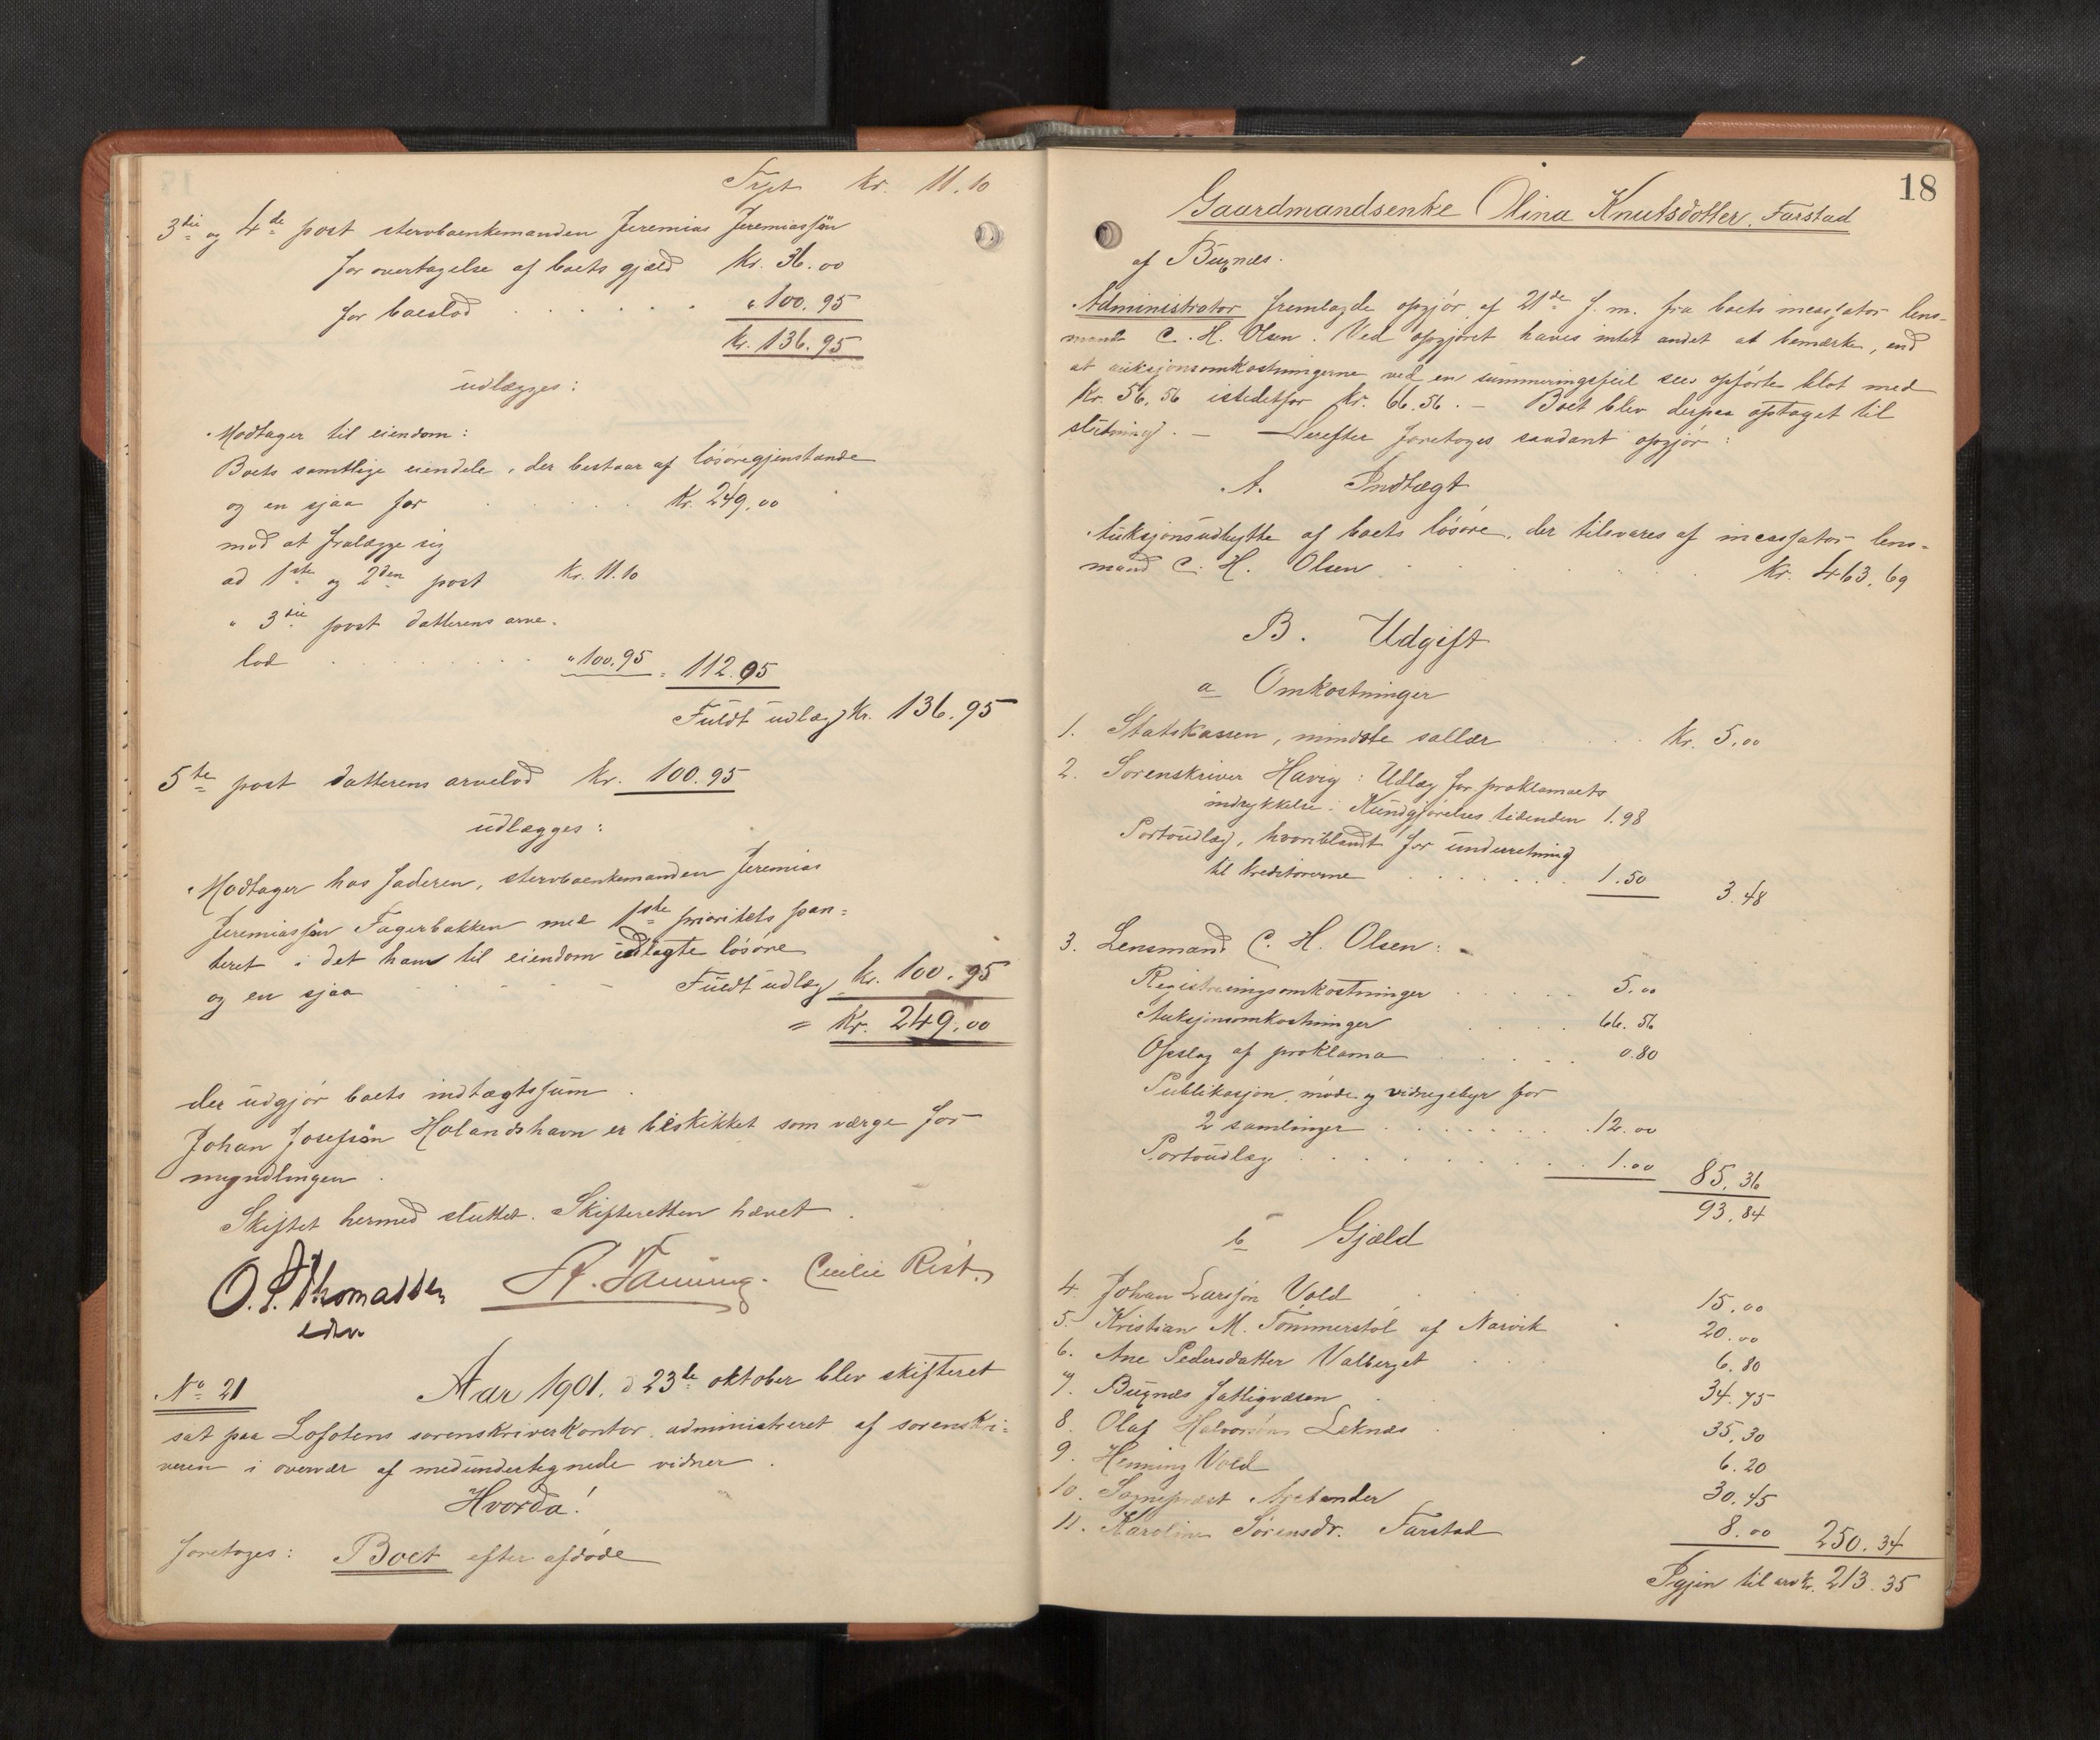 kr. 11.10
3die og 4de post stervboenkemanden Jeremias Jeremiassön
for overtagelse af boets gjæld kr. 36.00
for boeslod . . . . . . " 100.95
kr. 136.95
udlægges:
Modtager til eiendom:
Boets samtlige eiendele, der bestaar af løsøregjenstande
og en sjaa for . . . . . kr. 249.00
mod at fralægge sig
ad 1ste og 2den post kr. 11.10
" 3die post datterens arve-
lod . . . . . . . . . " 100.95 = 112.05
Fuldt udlæg kr. 136.95
5te post datterens arvelod kr. 100.95
udlægges:
Modtager hos faderen, stervboenkemanden Jeremias
Jeremiassön Fagerbakken med 1ste prioritets pan-
teret i det ham til eiendom udlagte løsøre
og en sjaa . . . . . Fuldt udlæg kr. 100.95
= Kr. 249.00
der udgjør boets indtægtssum.
Johan Josefsön Holandshavn er beskikket som værge for
myndlingen.
Skiftet hermed sluttet. Skifteretten hævet.
O. P. Thomassen Cecilie Rist.
edv.
No 21 Aar 1901, d 23de oktober blev skifteret
sat paa Lofotens sorenskriverkontor, administreret af sorenskri-
veren i overvær af medundertegnede vidner.
Hvorda!
foretoges: Boet efter afdøde
18
Gaardmandsenke Olina Knutsdotter, Farstad
af Buxnæs.
Administrator fremlagde opgjør af 21de f. m. fra boets incassator lens-
mand C. H. Olsen. Ved opgjøret haves intet andet at bemærke, end
at auksjonsomkostningerne ved en summeringsfeil sees opførte blot med
kr. 56,56 istedetfor kr. 66.56. – Boet blev derpaa optaget til
slutning. – Derefter foretoges saadant opgjør:
A. Indtægt
Auksjonsudbytte af boets løsøre, der tilsvares af incassator lens-
mand C. H. Olsen . . . . . . kr. 463.69
B. Udgift
a Omkostninger
1. Statskassen, mindste sallær . . . . kr. 5.00
2. Sorenskriver Havig: Udlæg for proklamaets
indrykkelse i Kundgjørelses tidenden 1.98
Portoudlæg, hvoriblandt for underretning
til kreditorerne . . . . . . . 1.50 3.48
3. Lensmand C. H. Olsen:
Registreringsomkostninger . . . . . 5.00
Auksjonsomkostninger . . . . 66.56
Opslag af proklama . . . . . 0.80
Publikasjon, møde og vidnegebyr for
2 samlinger . . . . . . . 12.00
Portoudlæg . . . . . . . . . 1.00 85.36
93.84
b Gjæld
4. Johan Larssön Vold . . . 15.00
5. Kristian M. Tömmerstöl af Narvik . 20.00
6. Ane Pedersdatter Valberget . . . 6.80
7. Buxnæs fattigvæsen . 34.75
8. Olaf Halvorsöns Leknæs . . . 35.30
9. Henning Vold 6.20
10. Sogneprest 30.45
11. Karoline Sörensdr. Farstad 8.00 250.34
Igjen til arv kr. 213.35